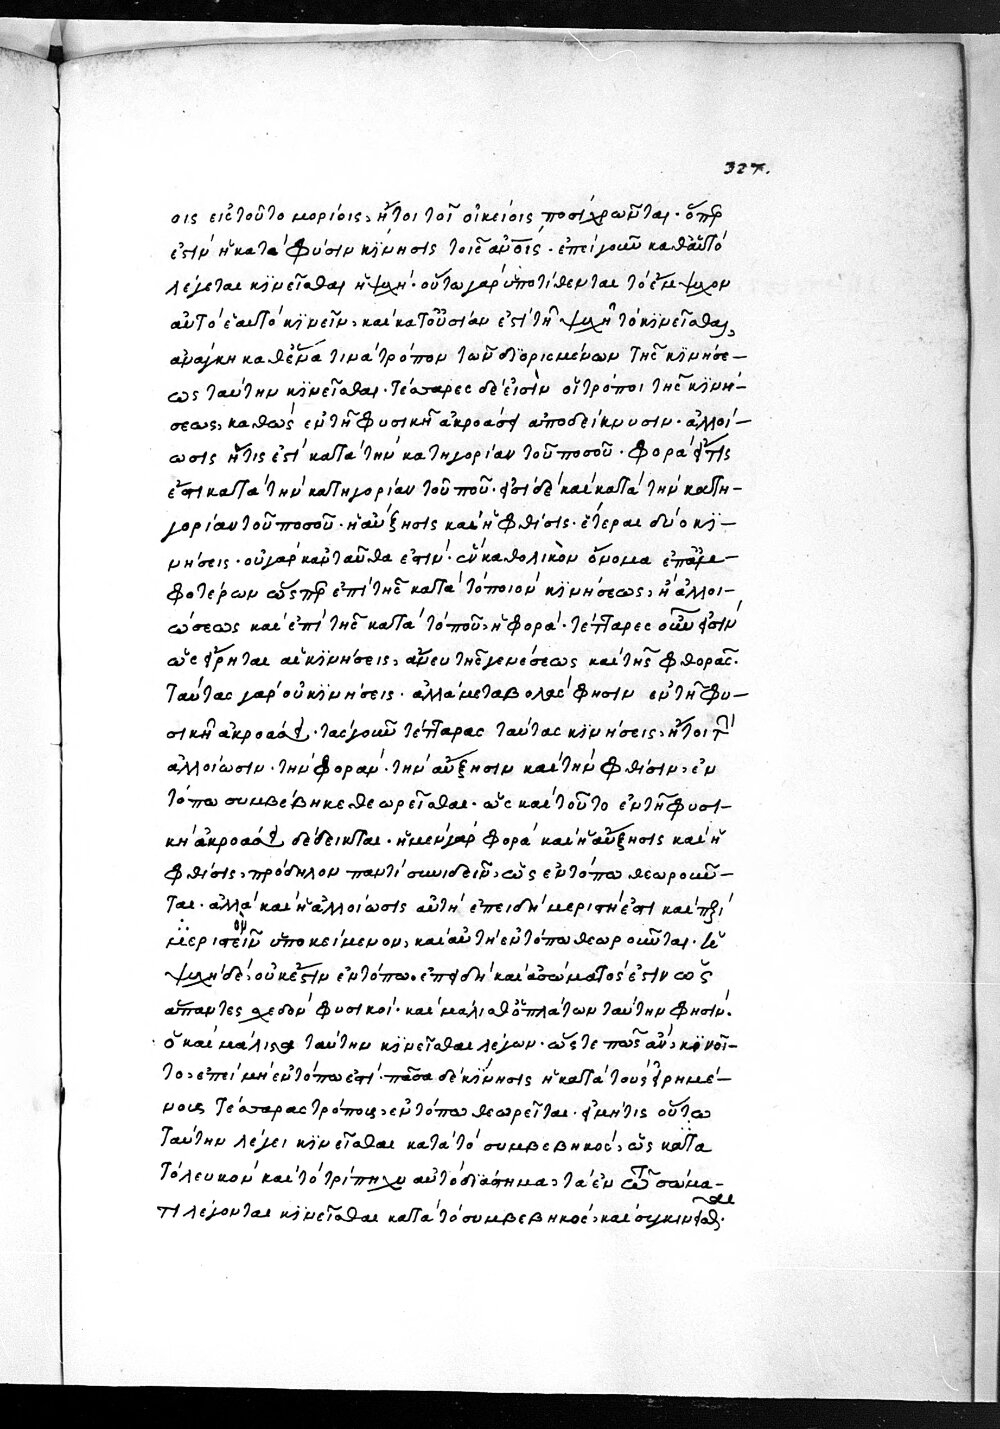 327.
οις εις τοῦτο μορίοις, ἤτοι τοῖς οἰκείοις ποσὶ χρῶνται. ὅπερ
ἐστὶν ἡ κατὰ φύσιν κίνησις τοῖς αὐτοῖς. ἐπεὶ γοῦν καθ' αὑτὸ
λέγεται κινεῖσθαι ἡ ψυχή. οὕτω γὰρ ὑποτίθενται τὸ ἔμψυχον
αὐτὸ ἑαυτὸ κινεῖν, καὶ κατ' οὐσίαν ἐστὶ τῇ ψυχῇ τὸ κινεῖσθαι,
ἀνάγκη καθ' ἕνα τινὰ τρόπον τῶν διορισμένων τῆς κινήσε-
ως ταύτην κινεῖσθαι. τέσσαρες δέ εἰσὶν οἱ τρόποι τῆς κινή-
σεως, καθὼς ἐν τῇ φυσικῇ ἀκροάσει ἀποδείκνυσιν. ἀλλοί-
ωσις ἥτις ἐστὶ κατὰ τὴν κατηγορίαν τοῦ ποσοῦ. φορὰ ἥτις
ἐστι κατὰ τὴν κατηγορίαν τοῦ ποῦ. εἰσὶ δὲ καὶ κατὰ τὴν κατη-
γορίαν τοῦ ποσοῦ. ἡ αὔξησις καὶ ἡ φθίσις. ἕτεραι δύο κι-
νήσεις. οὐ γὰρ κἀνταῦθα ἐστὶν. ἓν καθολικὸν ὄνομα ἐπ' ἀμ-
φοτέρων ὥσπερ ἐπὶ τῆς κατὰ τὸ ποιὸν κινήσεως, ἡ ἀλλοι-
ώσεως καὶ ἐπὶ τῆς κατὰ τὸ ποῦ, ἡ φορά. τέτταρες οὖν εἰσὶν
ὡς εἴρηται αἱ κινήσεις, ἄνευ τῆς γενέσεως καὶ τῆς φθορᾶς.
ταύτας γὰρ οὐ κινήσεις. ἀλλὰ μεταβολάς φησιν ἐν τῇ φυ-
σικῇ ἀκροάσει. τὰς γοῦν τέτταρας ταύτας κινήσεις, ἤτοι τὴν
ἀλλοίωσιν. τὴν φοράν. τὴν αὔξησιν καὶ τὴν φθίσιν, ἐν
τόπω συμβέβηκε θεωρεῖσθαι. ὡς καὶ τοῦτο ἐν τῇ φυσι-
κῇ ἀκροάσει δέδεικται. ἡ μὲν γὰρ φορὰ καὶ ἡ αὔξησις καὶ ἡ
φθίσις, πρόδηλον παντὶ συνιδεῖν, ὡς ἐν τόπω θεωροῦν-
ται. ἀλλὰ καὶ ἡ ἀλλοίωσις αὐτὴ ἐπειδὴ μεριστή ἐστι καὶ περὶ
μεριστὸν ὑποκείμενον, καὶ αὐτὴ ἐν τόπω θεωροῦνται. ἡ
ψυχὴ δὲ, οὐκ ἔστιν ἐν τόπω. ἐπειδὴ καὶ ἀσώματός ἐστιν ὡς
ἅπαντες σχεδὸν φυσικοί. καὶ μάλισθ' ὁ πλάτων ταύτην φησίν.
ὁ καὶ μάλιστα ταύτην κινεῖσθαι λέγων. ὥστε πῶς ἂν, κινοῖ-
το, ἐπεὶ μὴ ἐν τόπω ἐστί. πᾶσα δὲ κίνησις ἡ κατὰ τοὺς εἰρημέ-
νους τέσσαρας τρόπους, ἐν τόπω θεωρεῖται. εἰ μή τις οὕτω
ταύτην λέγει κινεῖσθαι κατὰ τὸ συμβεβηκός, ὡς κατὰ
τὸ λευκὸν καὶ τὸ τρίπηχυ αὐτὸ διάστημα, τὰ ἐν τῶ σώμα-
τι λέγονται κινεῖσθαι κατὰ τὸ συμβεβηκός, καὶ συγκινεῖσθαι.